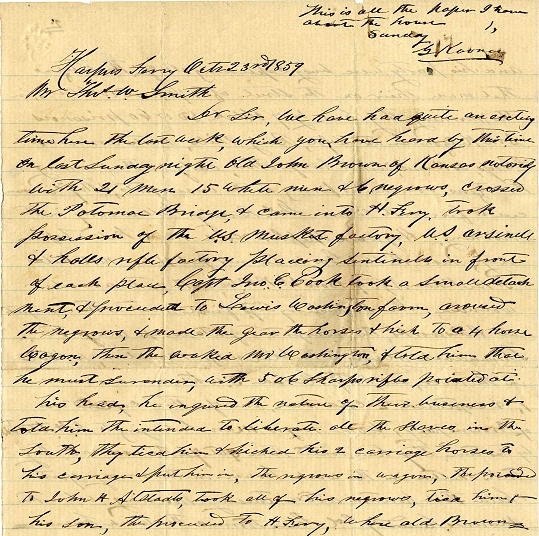 This is all the paper I have
about the house
Sunday
G Koonce
Harpers Ferry Octr 23rd 1859
Mr Thos. W. Smith
Dr Sir, We have had quite an exciting
time here the last week, which you have heard by this time
On last Sunday night Old John Brown of Kansas notority
with 21 men 15 white men & 6 negrows, crossed
the Potomac Bridge, & came into H. Fery, took
possession of the U.S. Musket factory, U.S. arsinell
& halls rifle factory placing sentinells in front
of each place, Capt Jno. E. Cook took a small detach
ment, & proceeded to Lewis Washington farm, aroused
the negrows, & made the gear the horses & hich to a 4 horse
Wagon, then the waked Mr Washington, & told him that
he must surender, with 5 or 6 Sharps rifles pointed at
his head, he inqured the nature of their business &
told him the intended to liberate all the Slaves in the
South, they tied him & hiched his 2 carriage horses to
his carriage & put him in, the negrows in wagon, the proceeded
to John H Alstadts, took all of his negrows, tied him &
his son, the proceeded to H. Fery, where old Brown